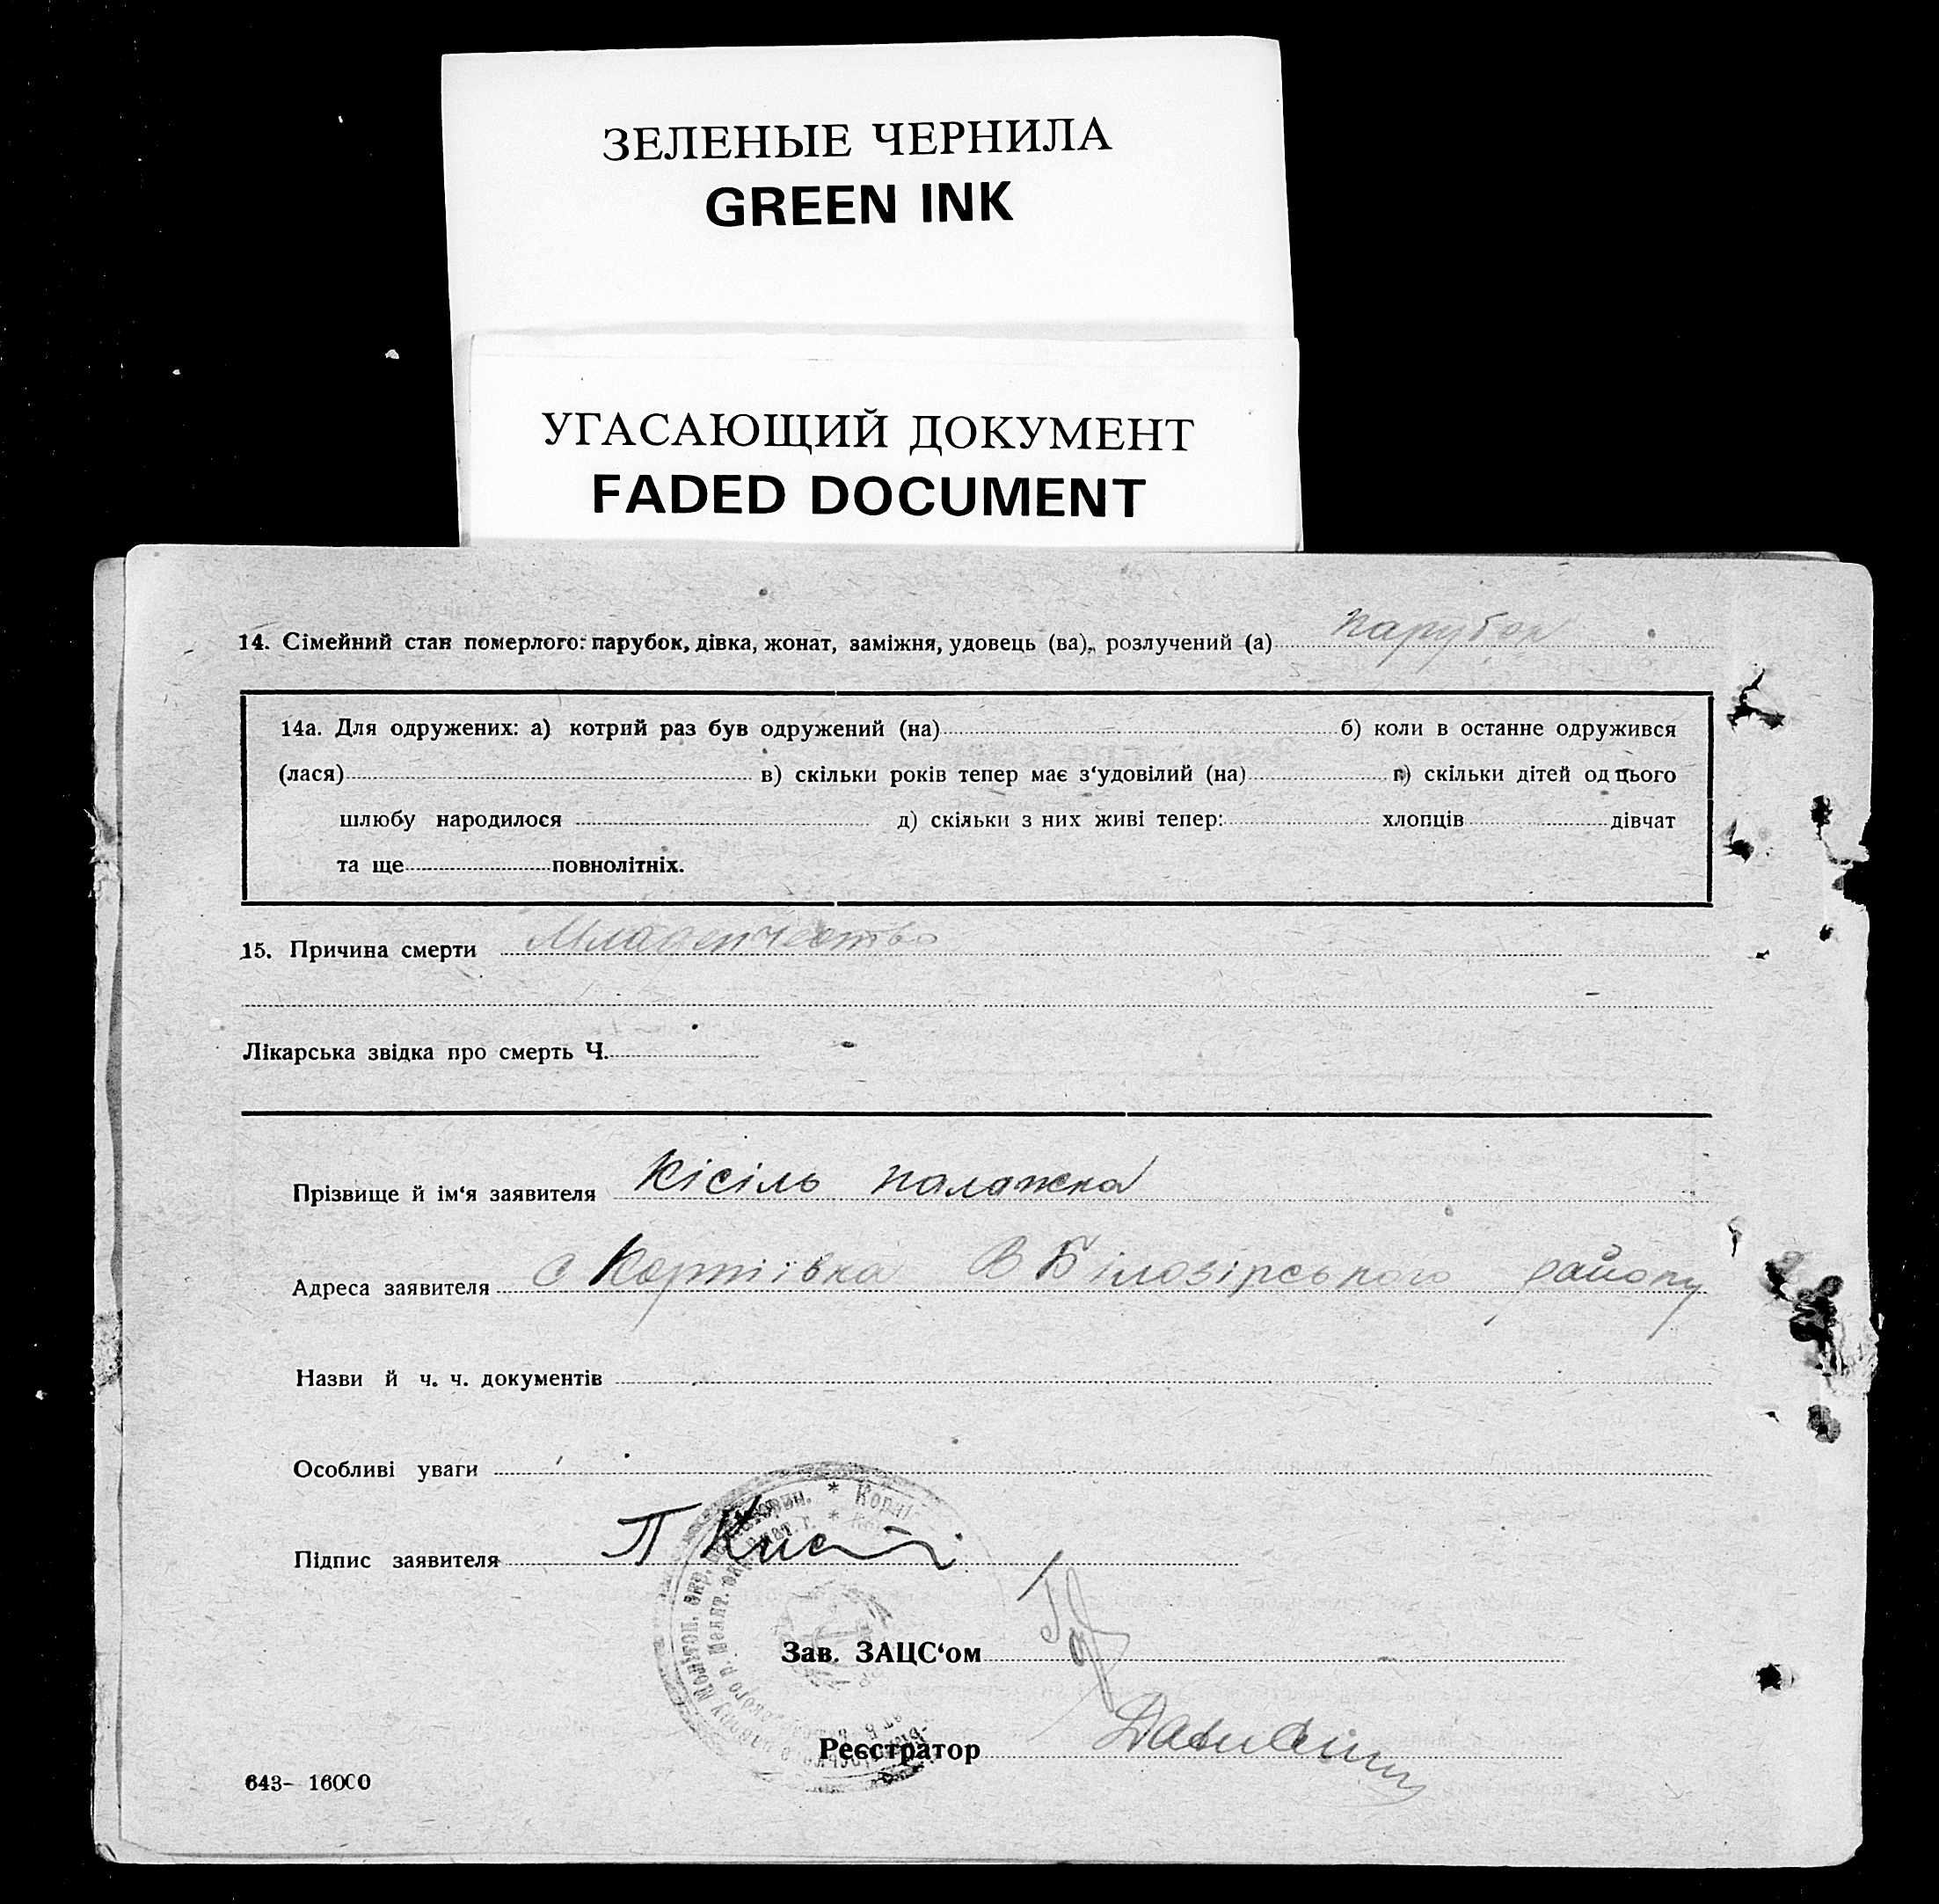 ЗЕЛЕНЫЕ ЧЕРНИЛА
GREEN INK
УГАСАЮЩИЙ ДОКУМЕНТ
FADED DOCUMENT
14. Сімейний стан померлого: парубок, дівка, жонат, заміжня, удовець (ва), розлучений (а) парубок
14а. Для одружених: а) котрий раз був одружений (на) б) коли в останне одружився
(лася) в) скільки років тепер має з‘удовілий (на) г) скільки дітей од цього
шлюбу народилося д) скільки з них живі тепер: хлопців дівчат
та ще повнолітніх.
15. Причина смерти Младенчество
Лікарська звідка про смерть Ч.
Прізвище й ім‘я заявителя Кісіль Палажка
Адреса заявителя с Корніївка В Білозірського району
Назви й ч. ч. документів
Особливі уваги
Підпис заявителя П Кисі
Зав. ЗАЦС‘ом
Реєстратор
643– 16000